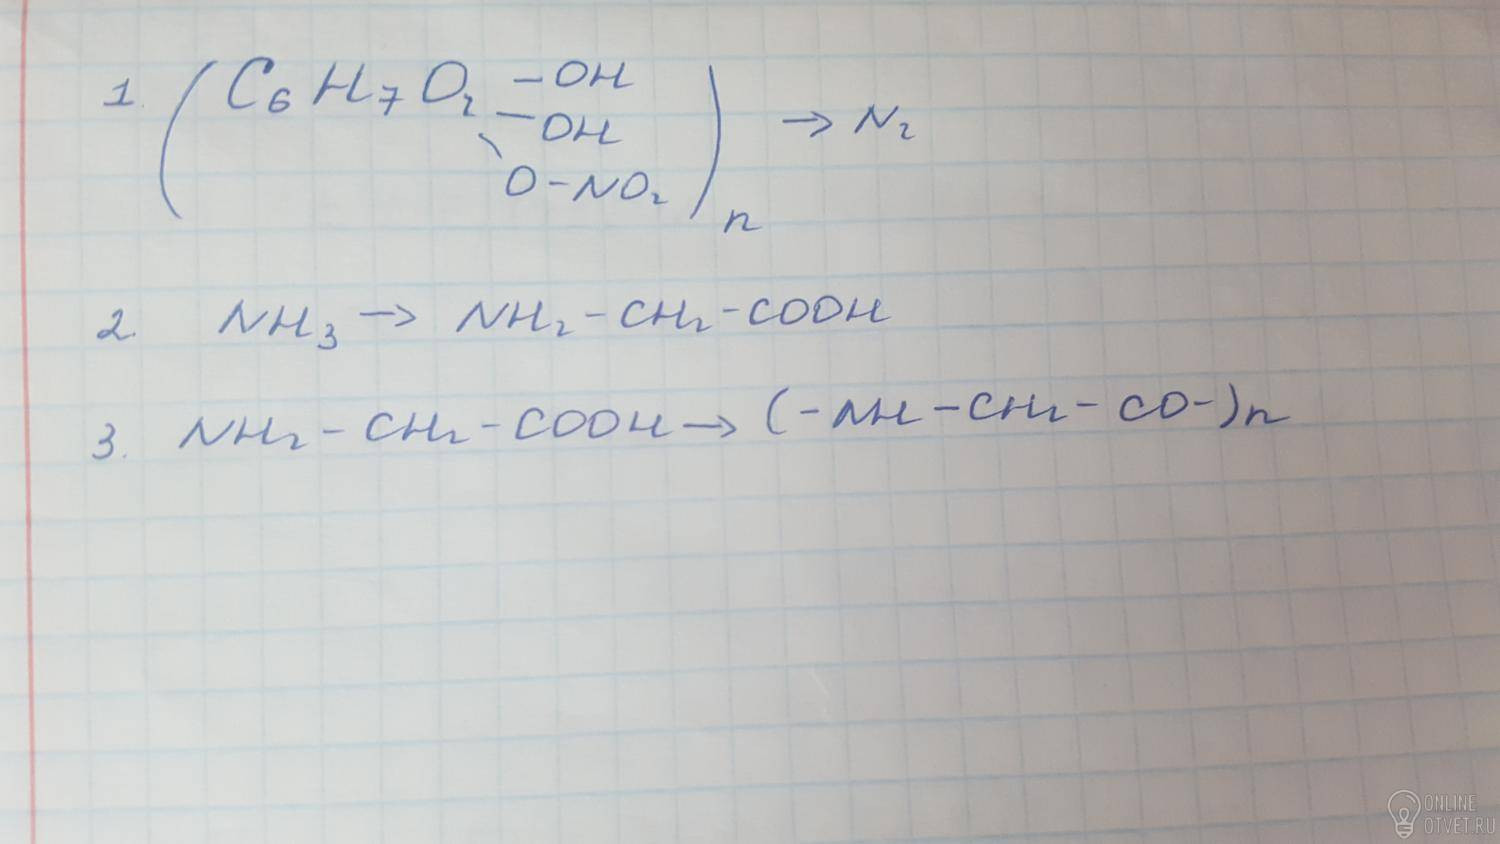 1. (C₆H₇O₂ -OH
-OH
O-NO₂)n → N₂
2. NH₃ → NH₂-CH₂-COOH
3. NH₂-CH₂-COOH → (-NH-CH₂-CO-)n
ONLINE
OTVET.RU